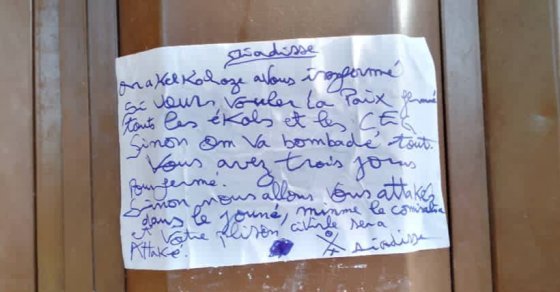 Diadisse
on a kelkohoze a vous imformé
Si vours, vouler La Paix fermé
tout les ékols et les CEG
Sinon om va bombade tout.
Vous avez trois jours
pour fermé.
Sinon nous allons vous attaké
dans le journé, mimme le comisatire
et votre prison civile sera
Attaké.
Diadisse